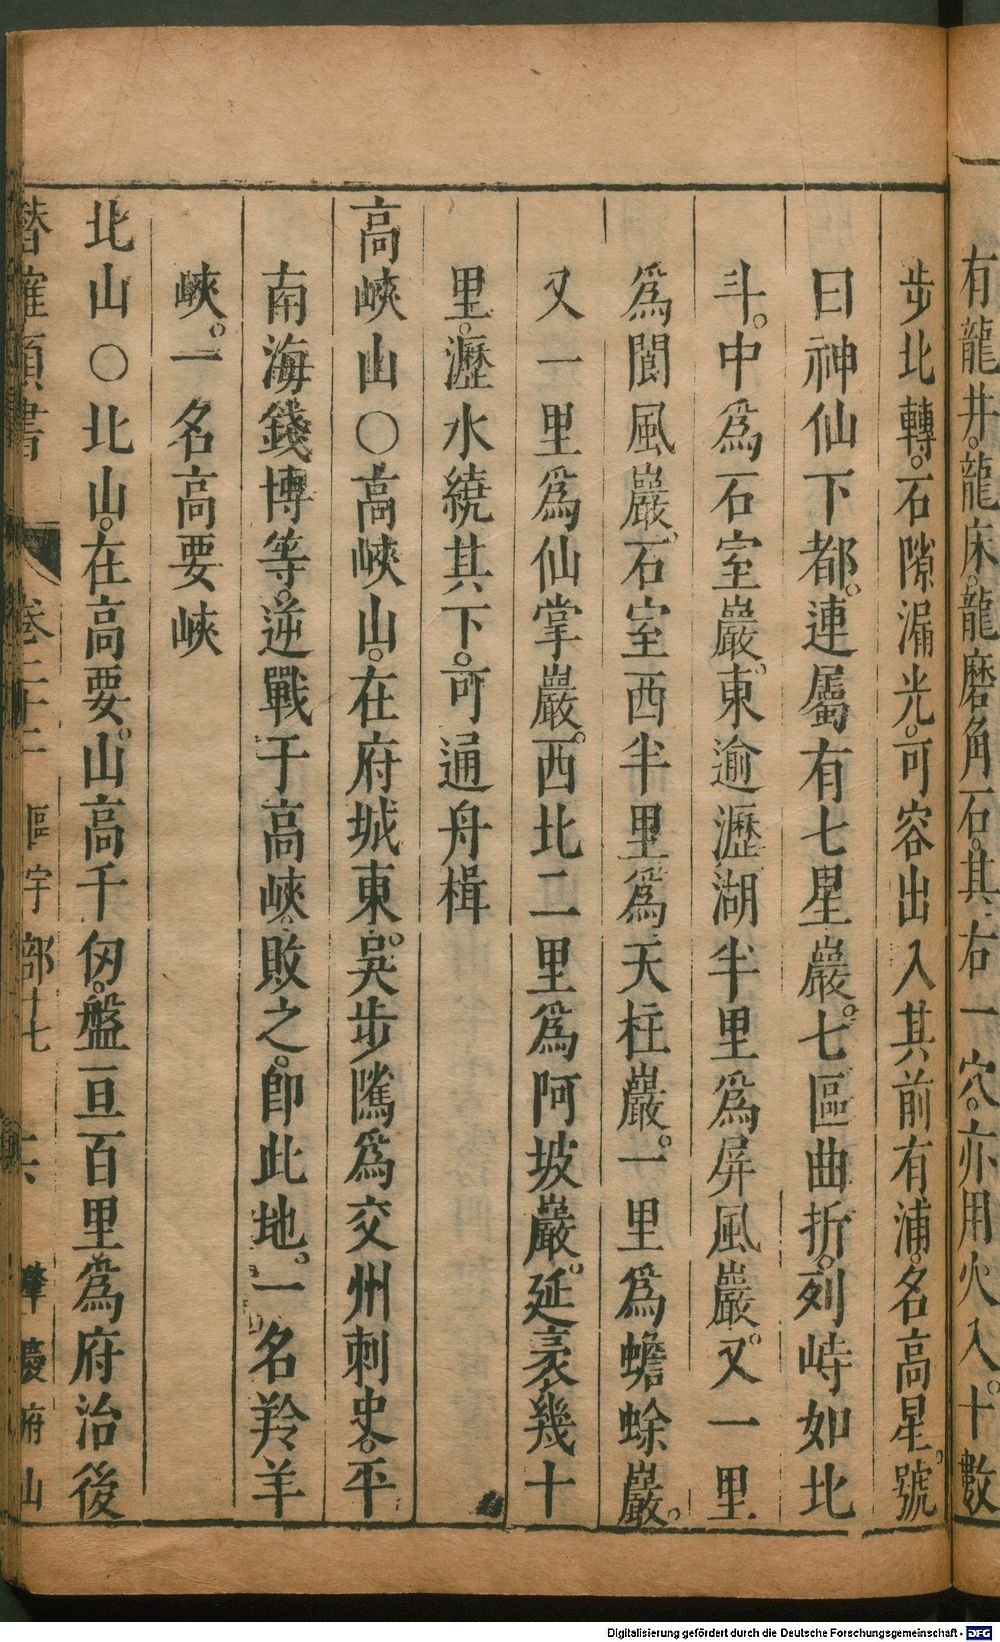 有龍井。龍床。龍磨角石。其右一穴。亦用火入。十數
步北轉。石隙漏光。可容出入其前有浦。名高星。號
曰神仙下都。連屬有七星巖。七區曲折。列峙如北
斗。中為石室巖。東逾瀝湖半里為屏風巖。又一里
為閬風巖。石室西半里為天柱巖。一里為蟾蜍巖。
又一里為仙掌巖。西北二里為阿坡巖。延袤幾十
里。瀝水繞其下。可通舟楫
高峽山○高峽山。在府城東。吳步騭為交州刺史。平
南海錢博等。逆戰于高峽。敗之。即此地。一名羚羊
峽。一名高要峽
北山○北山。在高要。山高千仞。盤亘百里為府治後
卷二十二 區宇部十七 肇慶府山
Digitalisierung gefördert durch die Deutsche Forschungsgemeinschaft - DFG